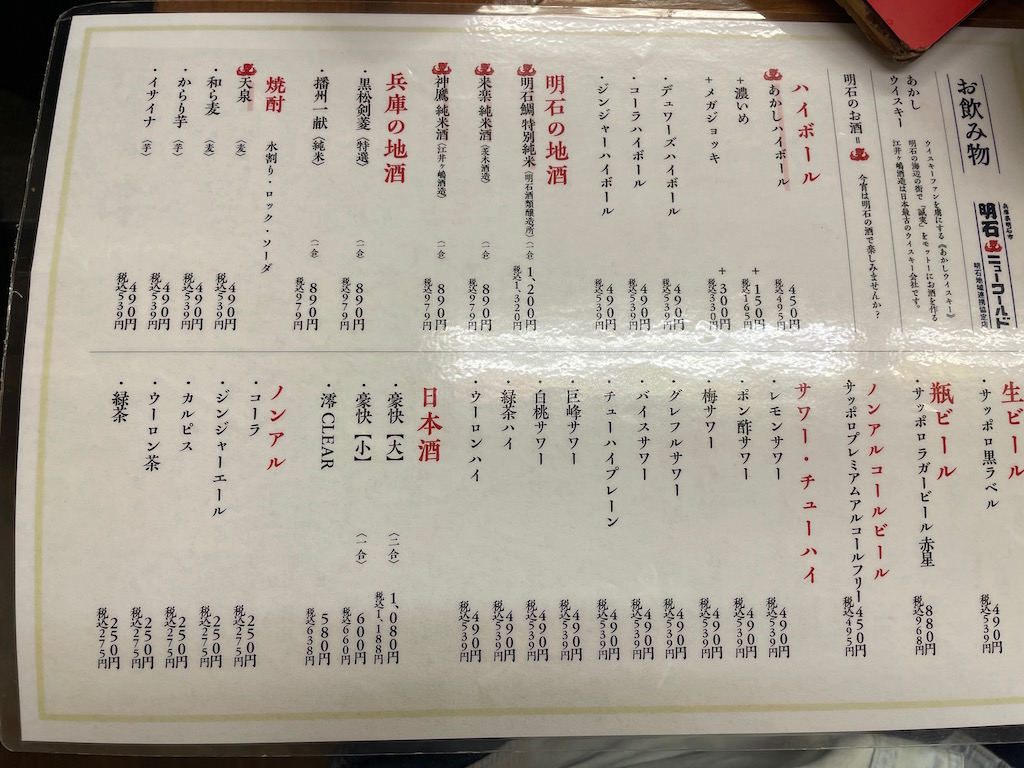 お飲み物
兵庫県明石市
明石ニューワールド
明石地域連携協定店
あかし
ウイスキー
ウイスキーファンを虜にする《あかしウイスキー》
明石の海辺の街で「誠実」をモットーにお酒を作る
江井ヶ嶋酒造は日本最古のウイスキー会社です。
明石のお酒=
今宵は明石の酒で楽しみませんか?
ハイボール
・あかしハイボール 450円 税込495円
+濃いめ +150円 税込165円
+メガジョッキ +300円 税込330円
・デュワーズハイボール 490円 税込539円
・コーラハイボール 490円 税込539円
・ジンジャーハイボール 490円 税込539円
明石の地酒
明石鯛 特別純米 (明石酒類醸造所) (一合) 1,200円 税込1,320円
来楽 純米酒 (茨木酒造) (一合) 890円 税込979円
神鷹 純米酒 (江井ヶ嶋酒造) (一合) 890円 税込979円
兵庫の地酒
・黒松剣菱 (特選) (一合) 890円 税込979円
・播州一献 (純米) (一合) 890円 税込979円
焼酎 水割り・ロック・ソーダ
天泉 (麦) 490円 税込539円
・和ら麦 (麦) 490円 税込539円
・からり芋 (芋) 490円 税込539円
・イサイナ (芋) 490円 税込539円
生ビール
・サッポロ黒ラベル 490円 税込539円
瓶ビール
・サッポロラガービール 赤星 880円 税込968円
ノンアルコールビール
サッポロプレミアムアルコールフリー 450円 税込495円
サワー・チューハイ
・レモンサワー 490円 税込539円
・ポン酢サワー 490円 税込539円
・梅サワー 490円 税込539円
・グレフルサワー 490円 税込539円
・バイスサワー 490円 税込539円
・チューハイプレーン 490円 税込539円
・巨峰サワー 490円 税込539円
・白桃サワー 490円 税込539円
・緑茶ハイ 490円 税込539円
・ウーロンハイ 490円 税込539円
日本酒
・豪快【大】 (二合) 1,080円 税込1,188円
・豪快【小】 (一合) 600円 税込660円
・澪CLEAR 580円 税込638円
ノンアル
・コーラ 250円 税込275円
・ジンジャーエール 250円 税込275円
・カルピス 250円 税込275円
・ウーロン茶 250円 税込275円
・緑茶 250円 税込275円